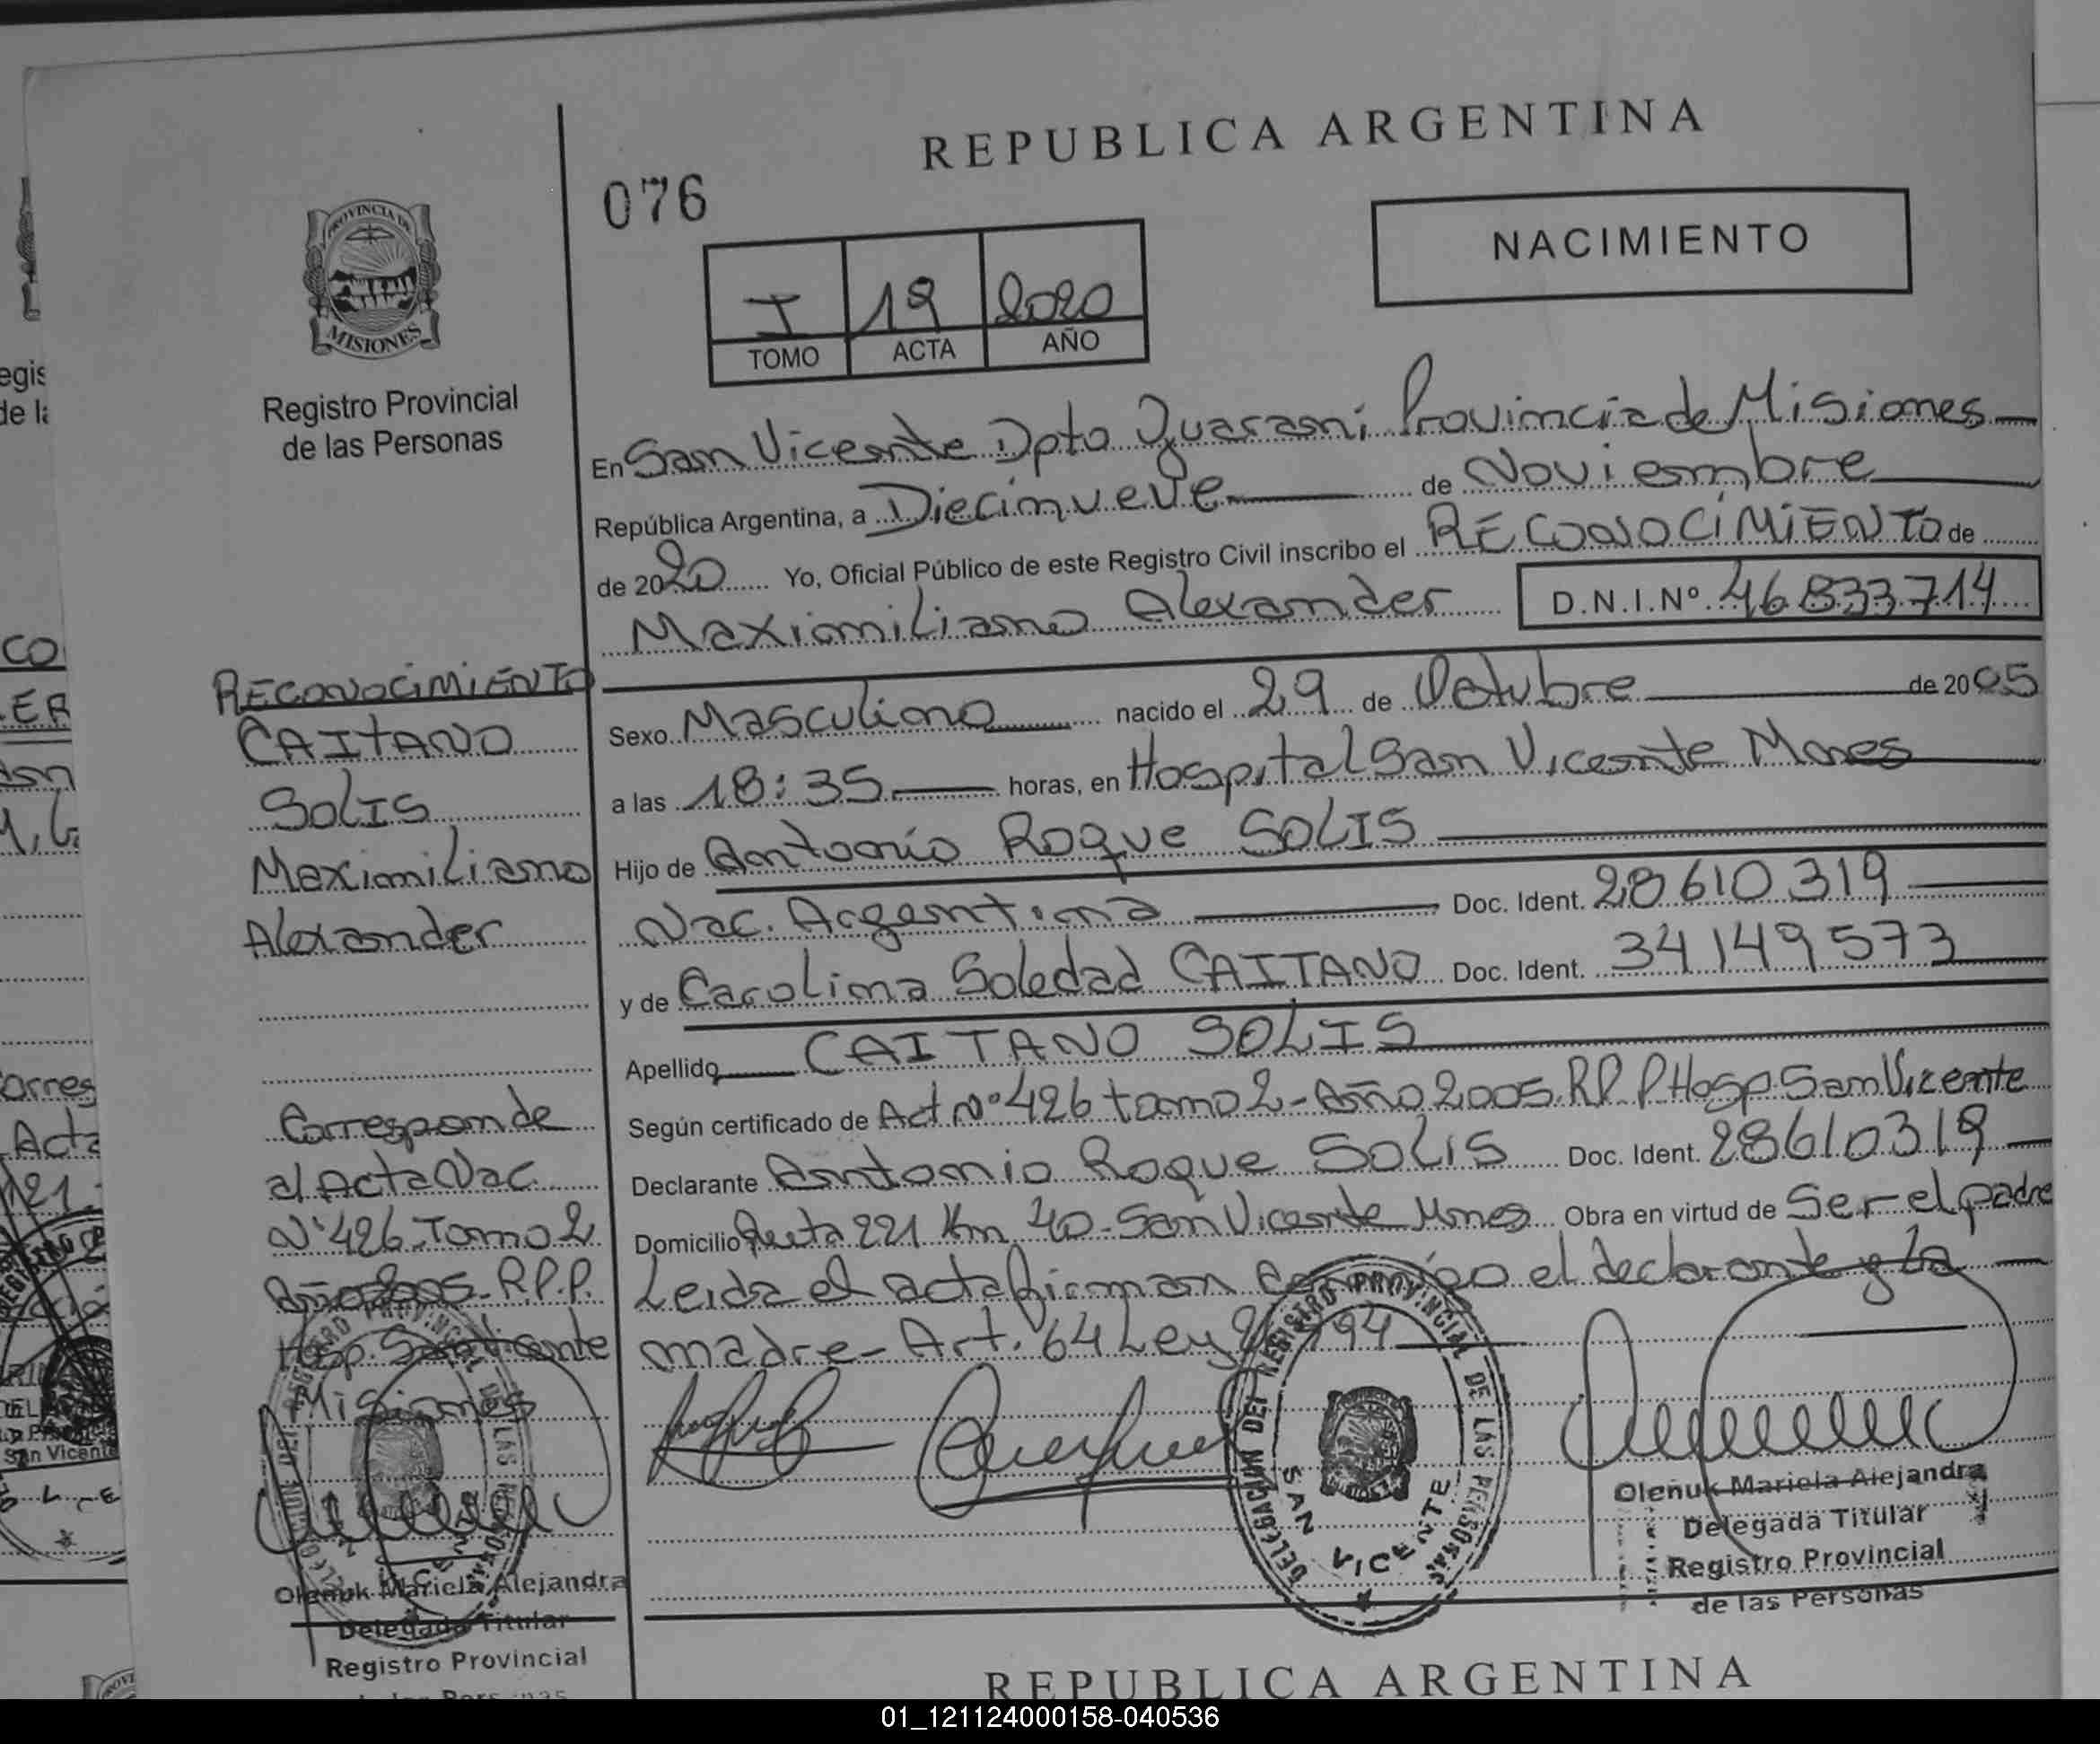 REPUBLICA ARGENTINA
076
NACIMIENTO
I 19 2020
TOMO ACTA AÑO
PROVINCIA DE
MISIONES
Registro Provincial
de las Personas
En San Vicente Dpto Guaraní Provincia de Misiones
República Argentina, a Diecinueve de Noviembre
de 2020 Yo, Oficial Público de este Registro Civil inscribo el RECONOCIMIENTO de
Maximiliano Alexander D.N.I.Nº 46833714
Sexo Masculino nacido el 29 de Octubre de 2005
a las 18:35 horas, en Hospital San Vicente Mnes
Hijo de Antonio Roque SOLIS
Nac. Argentina Doc. Ident. 28610319
y de Carolina Soledad CAITANO Doc. Ident. 34149573
Apellido CAITANO SOLIS
Según certificado de Act Nº 426 tomo 2 - Año 2005. R.P.P Hosp San Vicente
Declarante Antonio Roque SOLIS Doc. Ident. 28610319
Domicilio Ruta 221 Km 40 - San Vicente Mnes Obra en virtud de Ser el padre
Leida el acta firman conmigo el declarante y la
madre - Art. 64 Ley
RECONOCIMIENTO
CAITANO
SOLIS
Maximiliano
Alexander
Corresponde
al Acta Nac.
Nº 426 Tomo 2
Año 2005 - R.P.P.
Hosp. San Vicente
Misiones
DELEGACION DEL REGISTRO PROVINCIAL DE LAS PERSONAS
SAN VICENTE
Oleñuk Mariela Alejandra
Delegada Titular
Registro Provincial
de las Personas
Oleñuk Mariela Alejandra
Delegada Titular
Registro Provincial
REPUBLICA ARGENTINA
01_121124000158-040536